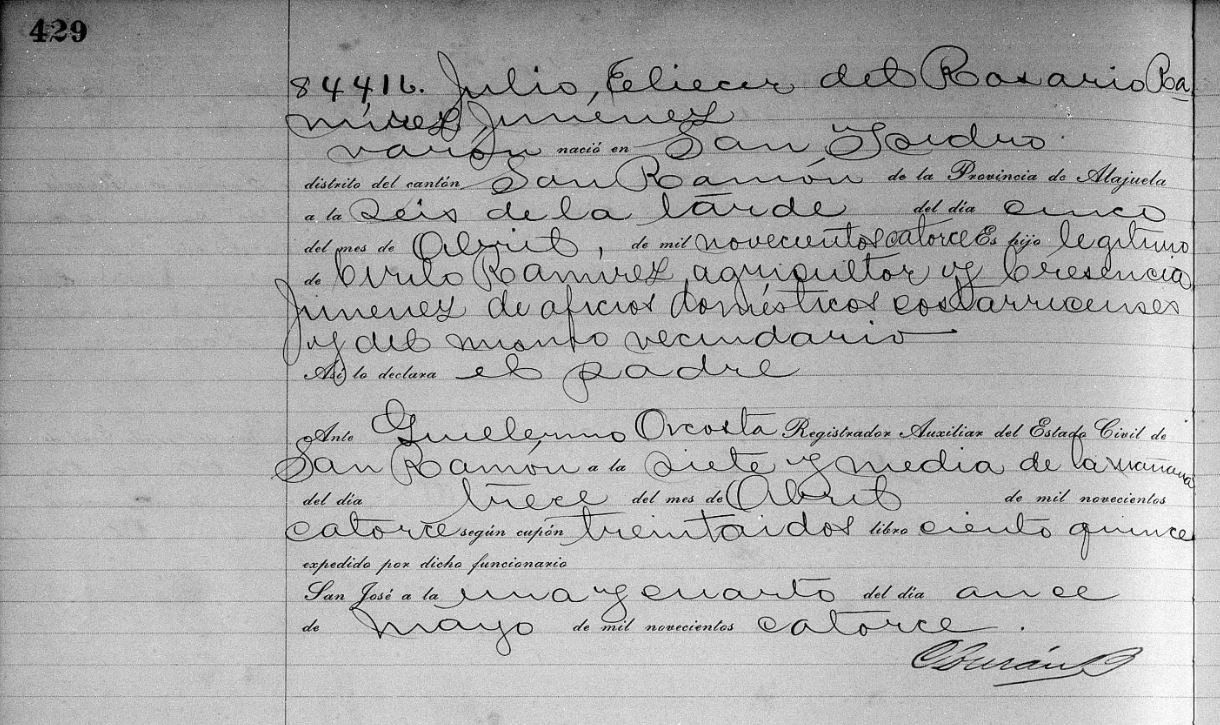 429
84416. Julio, Eliecer del Rosario Ra-
mírez Jimenez
varón nació en San Isidro
distrito del cantón San Ramón de la Provincia de Alajuela
a la seis de la tarde del día cinco
del mes de Abril, de mil novecientos catorce Es hijo legítimo
de Cirilo Ramírez, agricultor y Cresencia
Jimenez de oficios domésticos costarricenses
y del mismo vecindario
Así lo declara el padre
Ante Guillermo Orcosta Registrador Auxiliar del Estado Civil de
San Ramón a la siete y media de la mañana
del día trece del mes de Abril de mil novecientos
catorce según cupón treintaidos libro ciento quince
expedido por dicho funcionario
San José a la una y cuarto del día
de mayo de mil novecientos catorce.